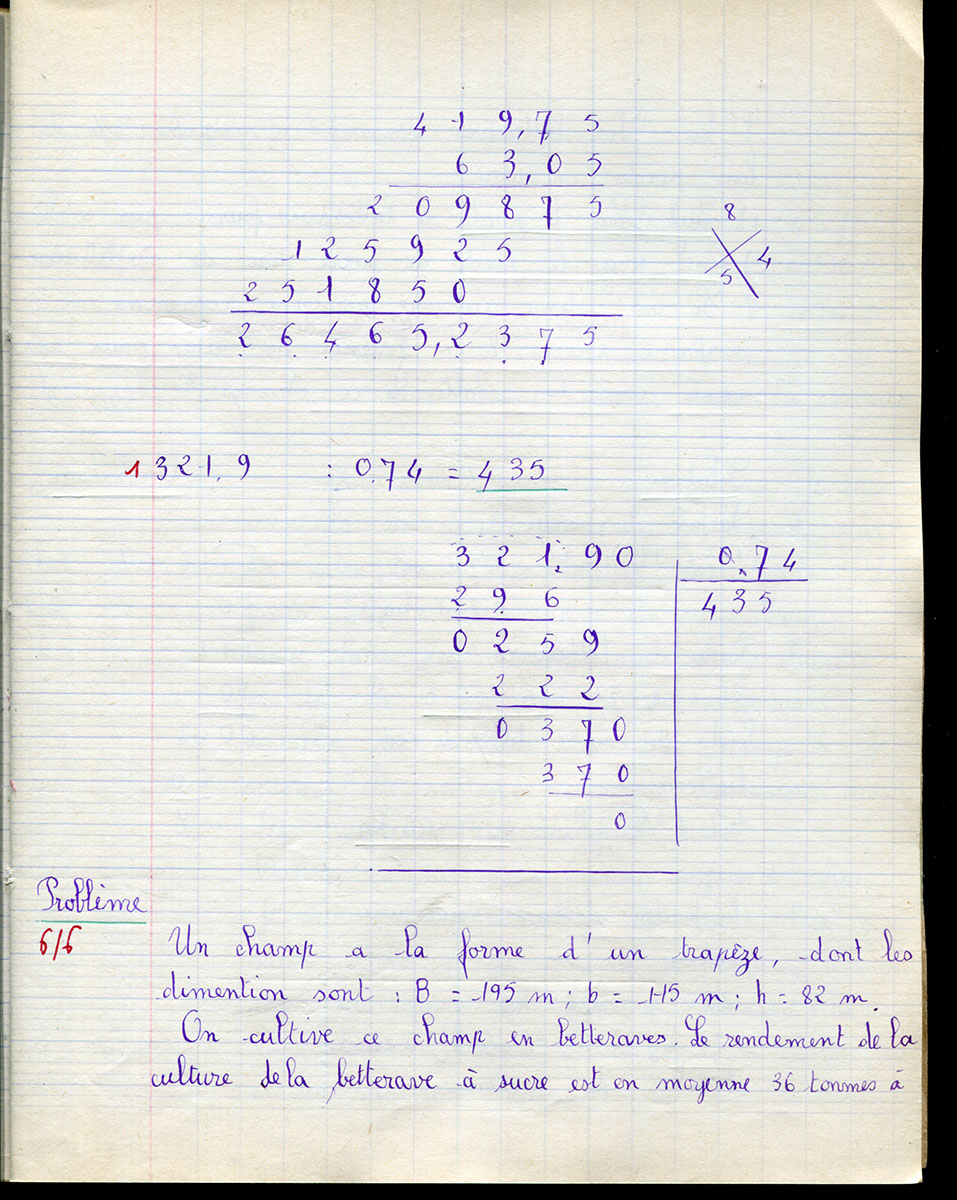 4 1 9,7 5
6 3,0 5
2 0 9 8 7 5
1 2 5 9 2 5
2 5 1 8 5 0
2 6 4 6 5,2 3 7 5
8
4
5
1 321,9 : 0,74 = 435
3 2 1,9 0 0,74
2 9 6 435
0 2 5 9
2 2 2
0 3 7 0
3 7 0
0
Problème
6/6 Un champ a la forme d'un trapèze, dont les
dimention sont : B = 195 m ; b = 115 m ; h = 82 m.
On cultive ce champ en betteraves. Le rendement de la
culture de la betterave à sucre est en moyenne 36 tonmes à